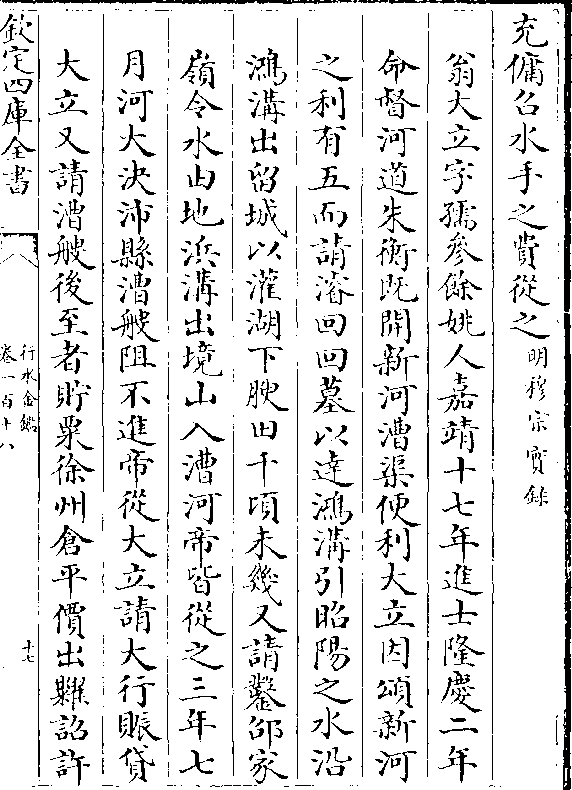 充傭召水手之費從之明穆宗實錄
翁大立字孺參餘姚人嘉靖十七年進士隆慶二年
命督河道朱衡既開新河漕渠便利大立因頌新河
之利有五而請濬回回墓以達鴻溝引昭陽之水沿
鴻溝出留城以灌湖下腴田千頃未幾又請鑿邵家
嶺令水由地浜溝出境山入漕河帝皆從之三年七
月河大決沛縣漕艘阻不進帝從大立請大行賑貸
大立又請漕艘後至者貯粟徐州倉平價出糶詔許
欽定四庫全書
行水金鑑
卷一百十八
十七